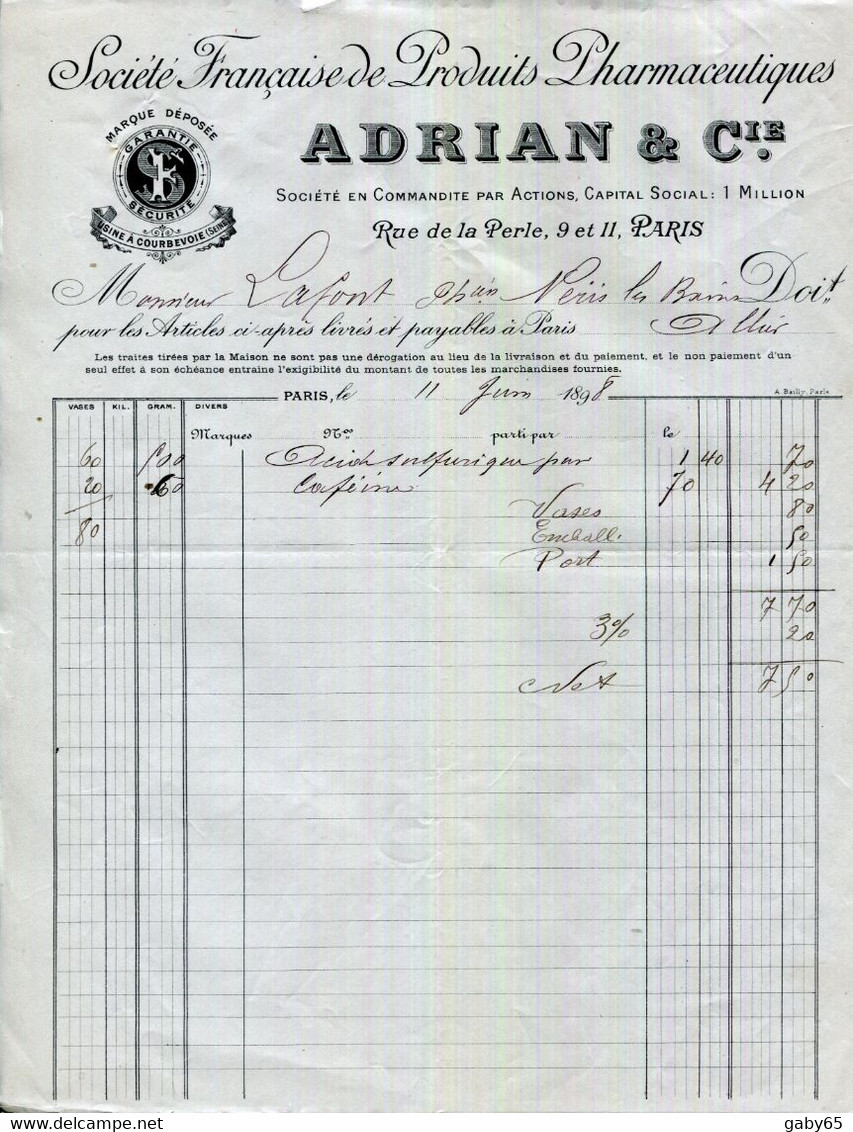 Société Française de Produits Pharmaceutiques
MARQUE DÉPOSÉE
GARANTIE
SÉCURITÉ
USINE À COURBEVOIE (SEINE)
ADRIAN & CIE.
SOCIÉTÉ EN COMMANDITE PAR ACTIONS, CAPITAL SOCIAL: 1 MILLION
Rue de la Perle, 9 et 11, PARIS
Monsieur Lafont Phien Néris les Bains Doit
pour les Articles ci-après livrés et payables à Paris Allier
Les traites tirées par la Maison ne sont pas une dérogation au lieu de la livraison et du paiement, et le non paiement d'un
seul effet à son échéance entraine l'exigibilité du montant de toutes les marchandises fournies.
PARIS, le 11 Juin 1898
A. Bailly, Paris
VASES KIL. GRAM. DIVERS
Marques Nos parti par le
60 500 Acide sulfurique pur 1 40 70
20 60 Caféine 70 4 20
Vases 80
80 Emball. 50
Port 1 50
7 70
3% 20
Net 7 50
gaby65